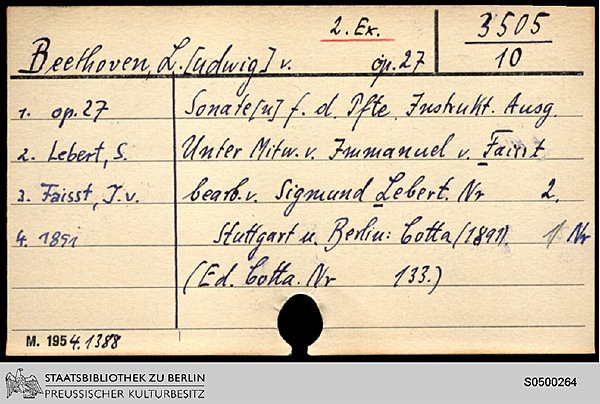 2. Ex.
3505
10
Beethoven, L.[udwig] v. op. 27
1. op. 27
Sonate[n] f. d. Pfte. Instrukt. Ausg.
2. Lebert, S.
Unter Mitw. v. Immanuel v. Faisst
3. Faisst, I. v.
bearb. v. Sigmund Lebert. Nr 2.
4. 1891
Stuttgart u. Berlin: Cotta (1891). 1 Nr
(Ed. Cotta. Nr 133.)
M. 1954.1388
STAATSBIBLIOTHEK ZU BERLIN
PREUSSISCHER KULTURBESITZ
S0500264